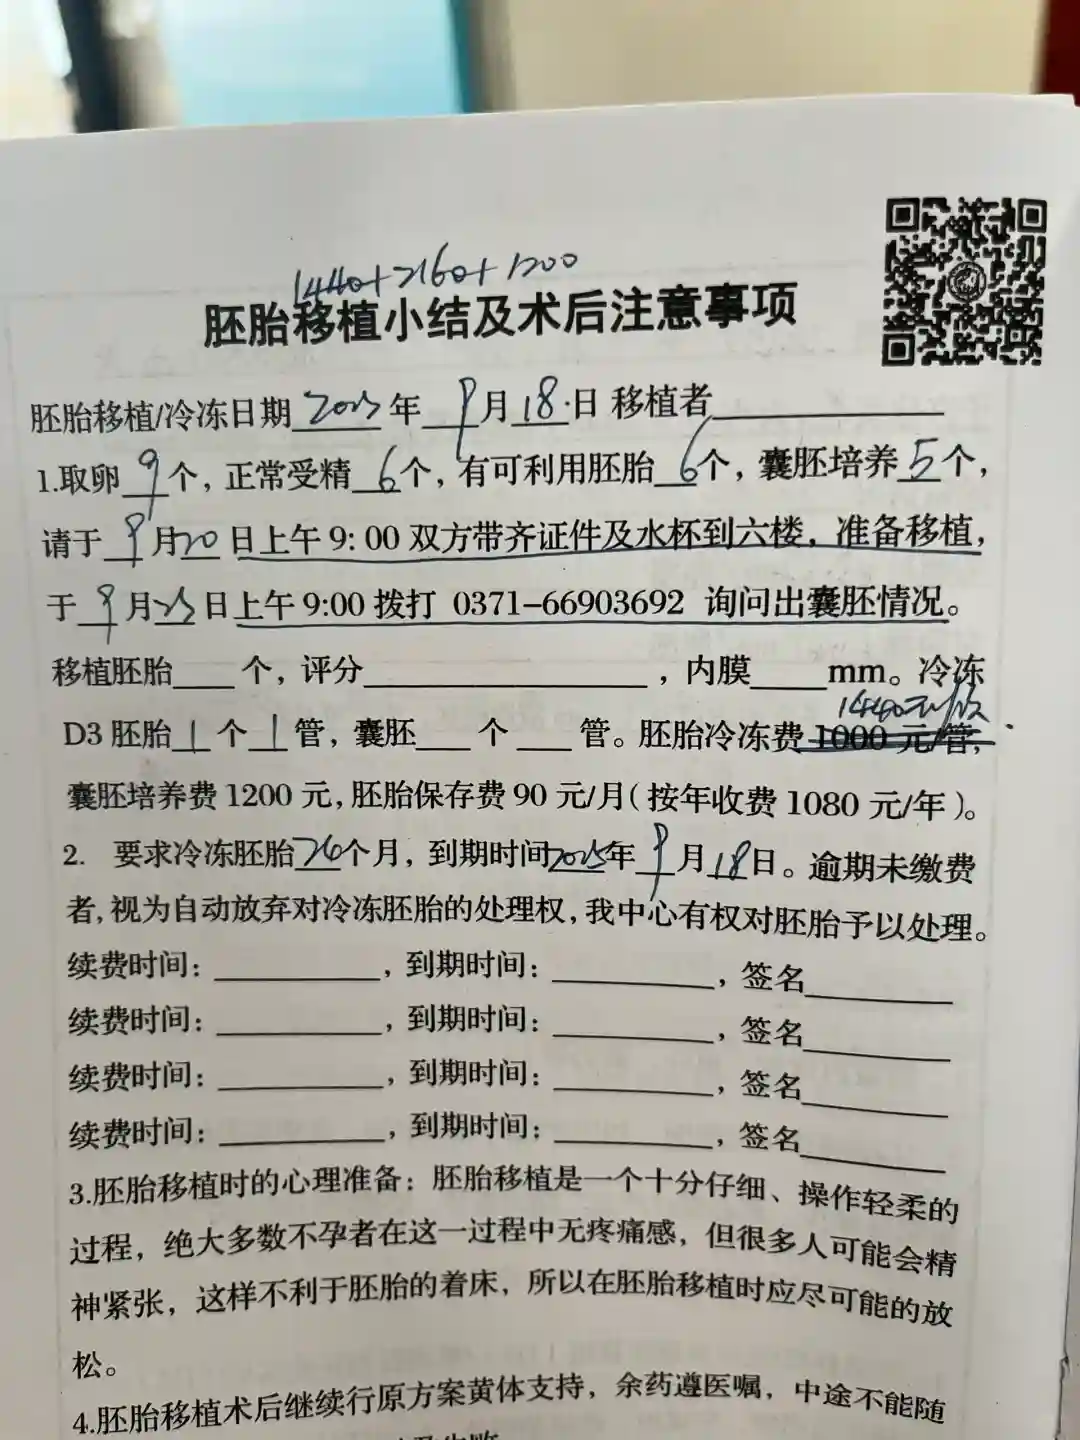 1440+2160+1200
胚胎移植小结及术后注意事项
胚胎移植/冷冻日期2023年9月18日 移植者
1.取卵9个，正常受精6个，有可利用胚胎6个，囊胚培养5个，
请于9月20日上午9:00双方带齐证件及水杯到六楼，准备移植，
于9月23日上午9:00拨打 0371-66903692 询问出囊胚情况。
移植胚胎____个，评分____，内膜____mm。冷冻
1440元/次
D3胚胎1个1管，囊胚____个____管。胚胎冷冻费1000元/管，
囊胚培养费1200元，胚胎保存费90元/月（按年收费1080元/年）。
2. 要求冷冻胚胎个月，到期时间2025年9月18日。逾期未缴费
者，视为自动放弃对冷冻胚胎的处理权，我中心有权对胚胎予以处理。
续费时间：____，到期时间：____，签名____
续费时间：____，到期时间：____，签名____
续费时间：____，到期时间：____，签名____
续费时间：____，到期时间：____，签名____
3.胚胎移植时的心理准备：胚胎移植是一个十分仔细、操作轻柔的
过程，绝大多数不孕者在这一过程中无疼痛感，但很多人可能会精
神紧张，这样不利于胚胎的着床，所以在胚胎移植时应尽可能的放
松。
4.胚胎移植术后继续行原方案黄体支持，余药遵医嘱，中途不能随